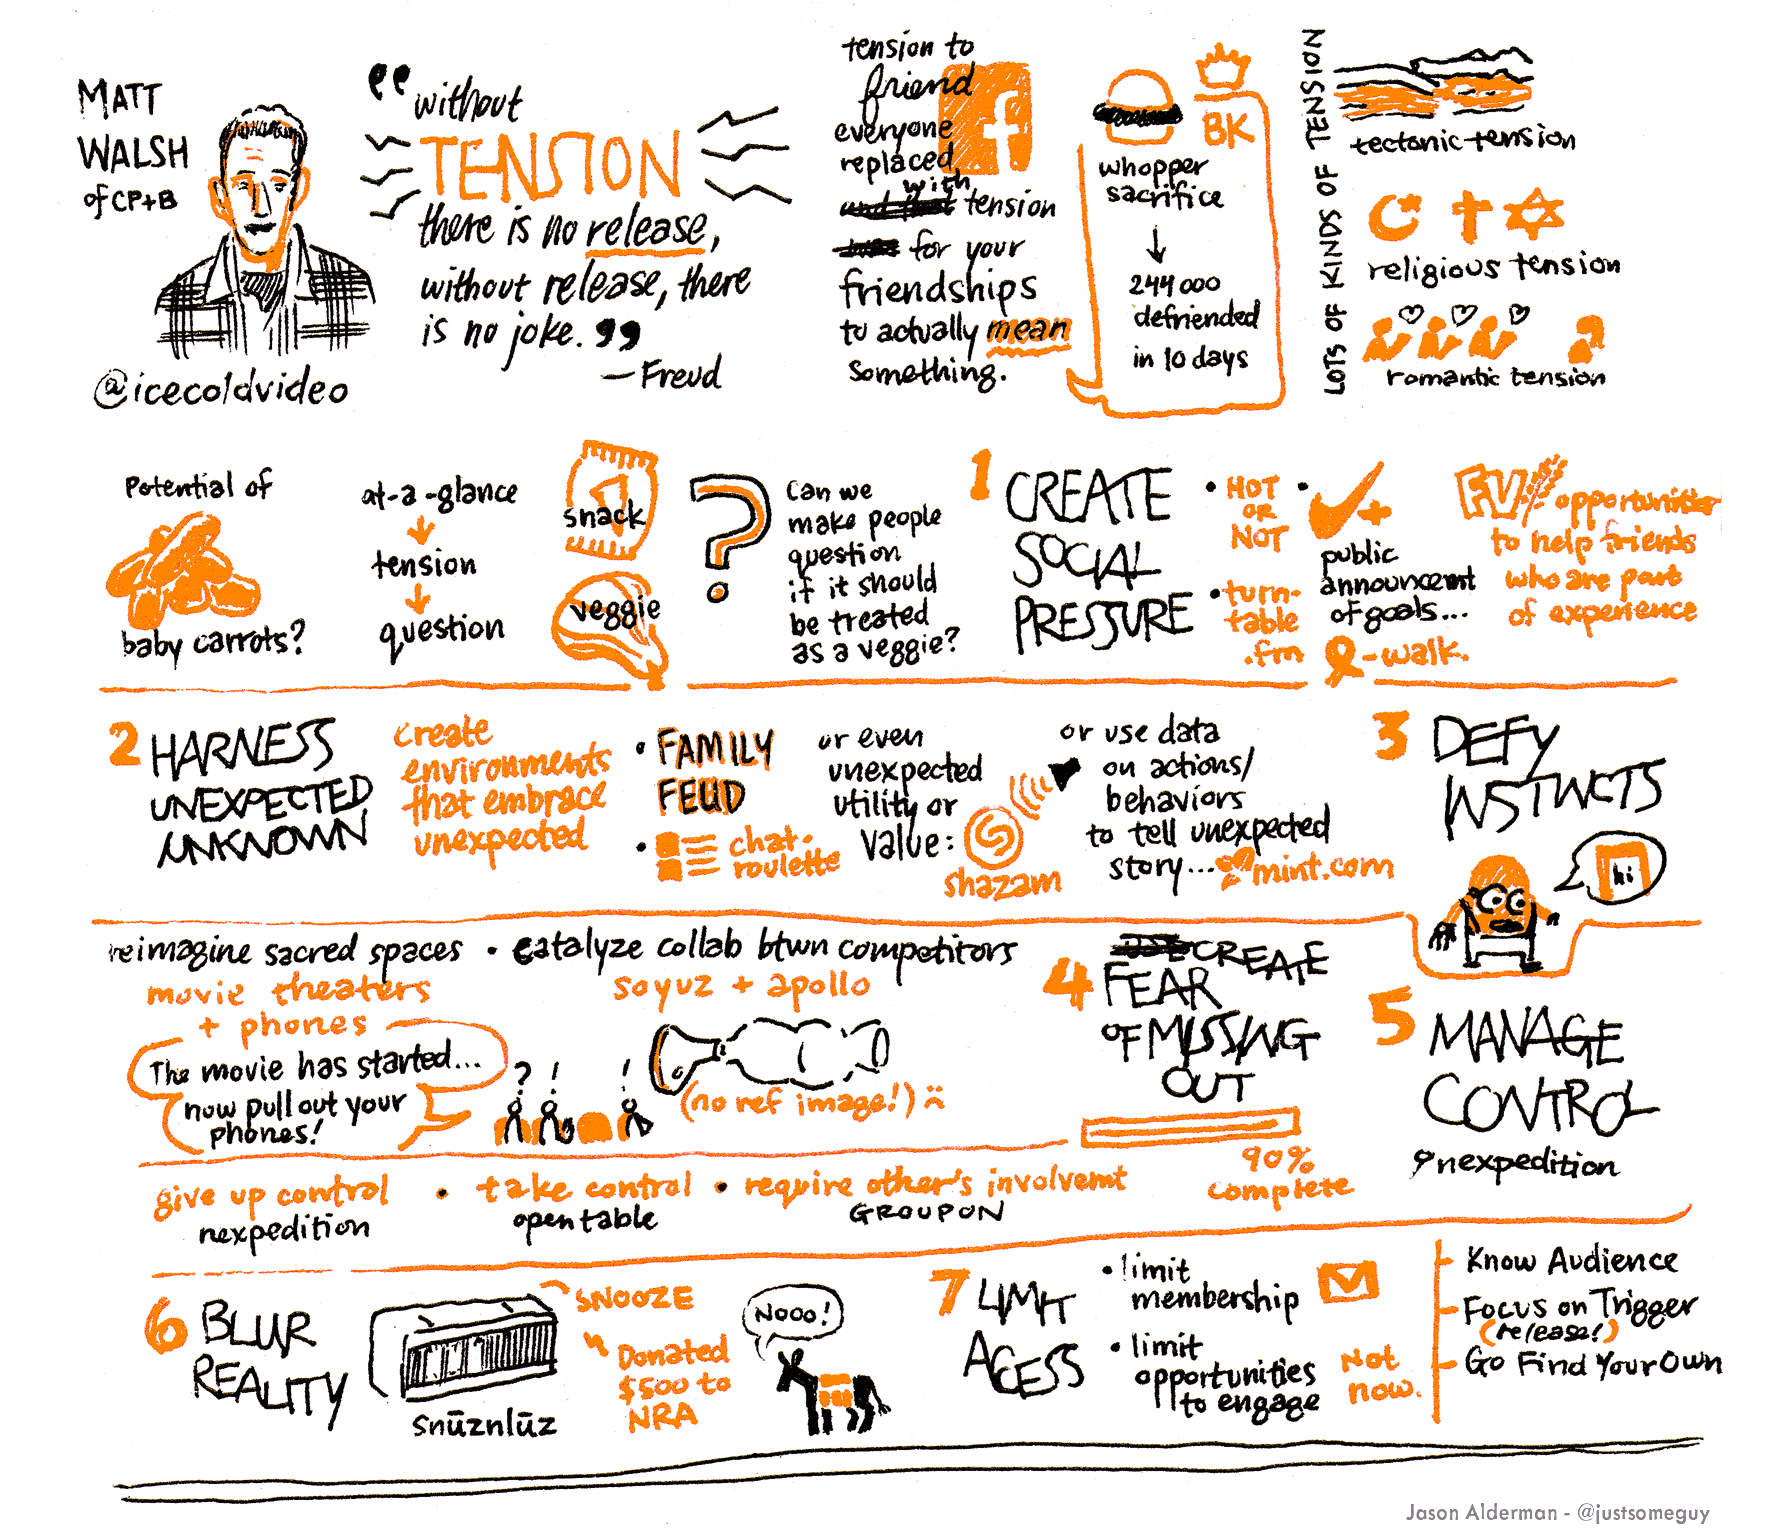 MATT
WALSH
of CP+B
@icecoldvideo
“without
TENSION
there is no release,
without release, there
is no joke.”
—Freud
tension to
friend
everyone
replaced
with
tension
for your
friendships
to actually mean
something.
f
BK
whopper
sacrifice
244000
defriended
in 10 days
LOTS OF KINDS OF TENSION
tectonic tension
religious tension
romantic tension
Potential of
baby carrots?
at-a-glance
tension
question
snack
veggie
?
Can we
make people
question
if it should
be treated
as a veggie?
1 CREATE
SOCIAL
PRESSURE
• HOT
OR
NOT
• turn-
table
.fm
• +
public
announcemt
of goals...
-walk.
FV opportunities
to help friends
who are part
of experience
2 HARNESS
UNEXPECTED
UNKNOWN
create
environments
that embrace
unexpected
• FAMILY
FEUD
• chat-
roulette
or even
unexpected
utility or
value:
shazam
or use data
on actions/
behaviors
to tell unexpected
story... mint.com
3 DEFY
INSTINCTS
hi
reimagine sacred spaces
movie theaters
+ phones
The movie has started...
now pull out your
phones!
? ! !
• catalyze collab btwn competitors
soyuz + apollo
(no ref image!) :(
4 CREATE
FEAR
OF MISSING
OUT
90%
complete
5 MANAGE
CONTROL
nexpedition
give up control
nexpedition
• take control
open table
• require other's involvemt
GROUPON
6 BLUR
REALITY
snūznlūz
SNOOZE
Donated
$500 to
NRA
NOOO!
7 LIMIT
ACESS
• limit
membership
• limit
opportunities
to engage
Not
now.
Know Audience
Focus on Trigger
(release!)
Go Find Your Own
Jason Alderman - @justsomeguy